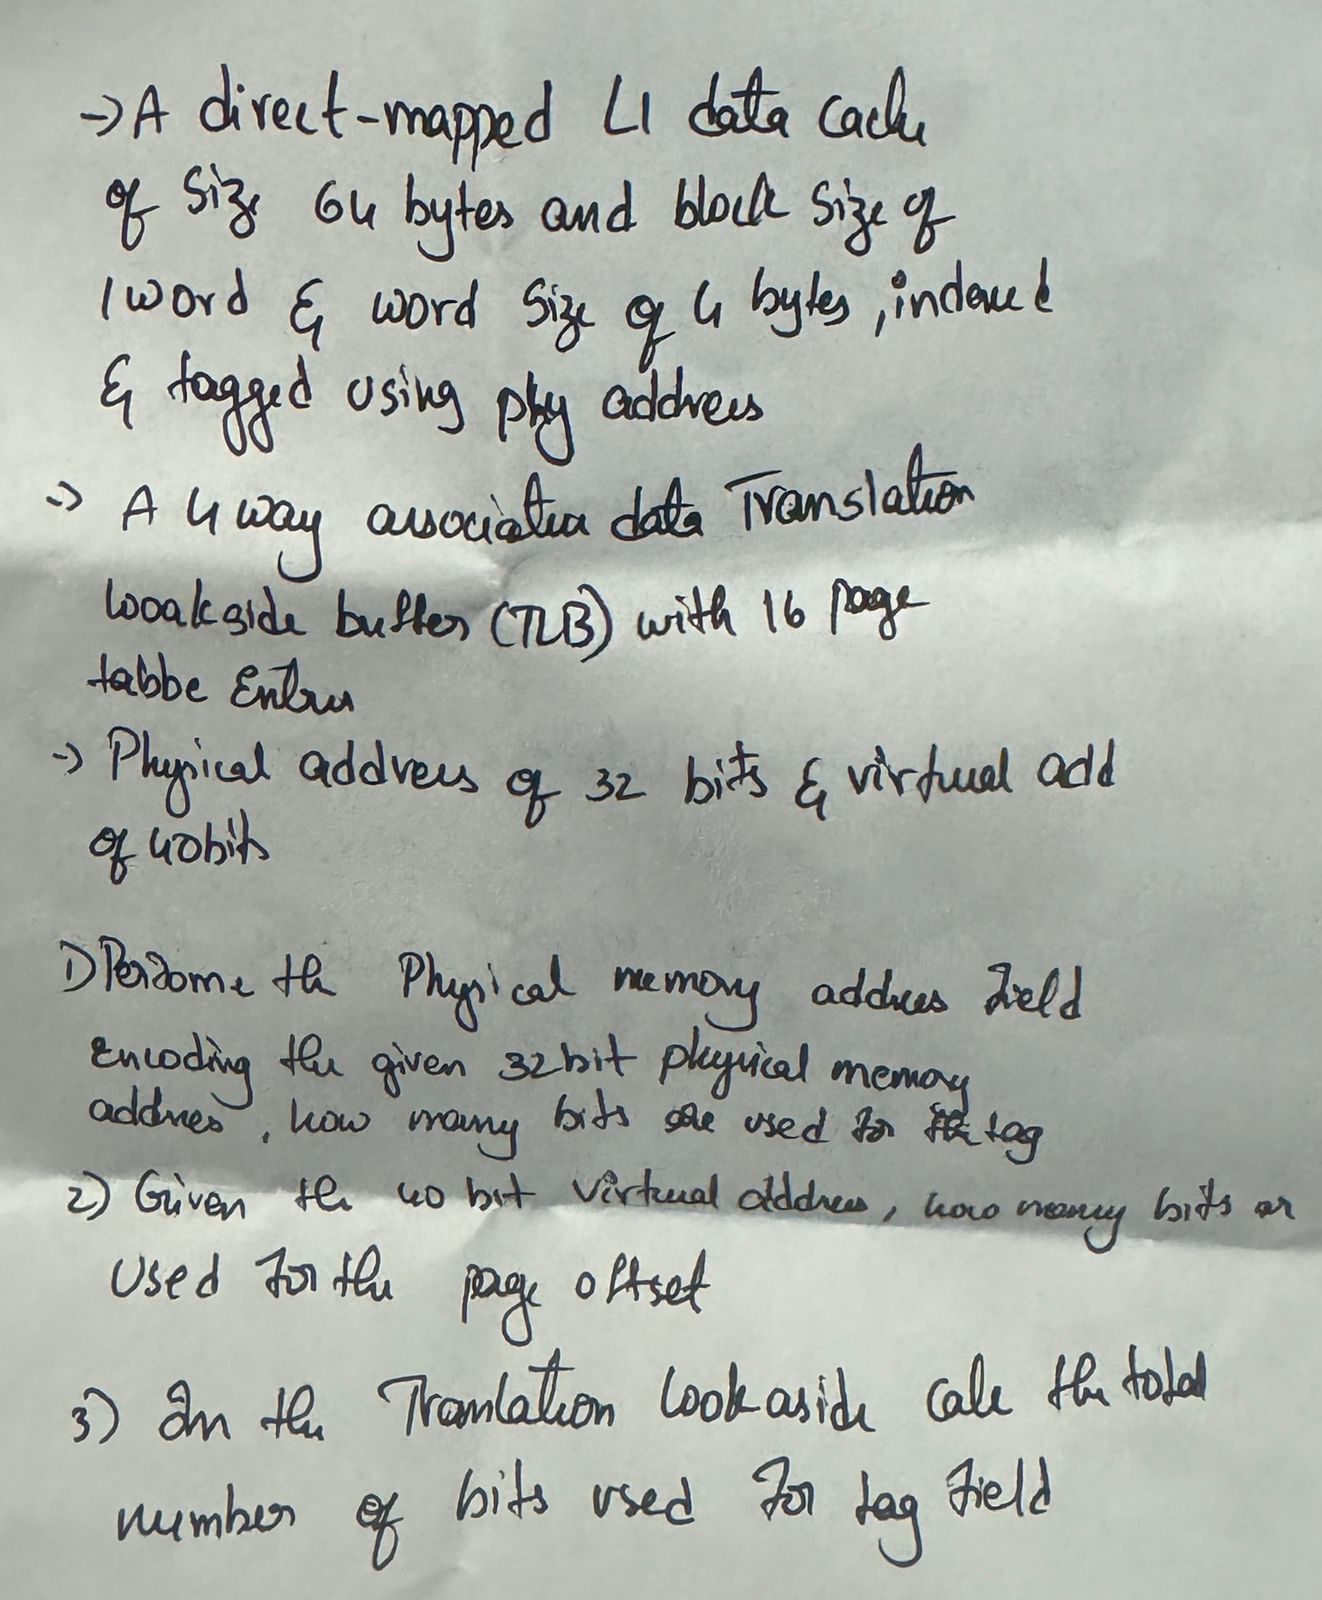 → A direct-mapped L1 data cache
of size 64 bytes and block size of
1 word & word size of 4 bytes, indexed
& tagged using phy address
→ A 4 way associative data Translation
Lookaside buffer (TLB) with 16 page
tabbe Entries
→ Physical address of 32 bits & virtual add
of 40bits
1) Perdome the Physical memory address field
encoding the given 32bit physical memory
address, how many bits are used for the tag
2) Given the 40 bit virtual address, how many bits are
used for the page offset
3) In the Translation lookaside calc the total
number of bits used for tag field